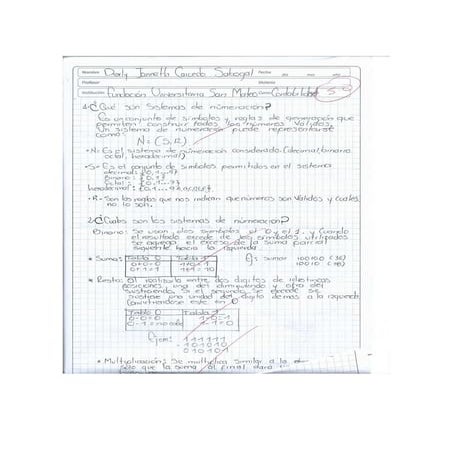 Nombre Derly Janneth Caicedo Sabogal Fecha día mes año
Profesor Materia
Institución Fundación Universitaria San Mateo Curso Contabilidad 5.0
1. ¿Qué son sistemas de numeración?
Es un conjunto de simbolos y reglas de generación que
permiten construir todos los numeros validos.
Un sistema de numeración puede representarse
como:
N = (S, R)
• N= Es el sistema de numeración considerado (decimal, binario
octal, hexadecimal)
• S= Es el conjunto de simbolos permitidos en el sistema
decimal {0,1...9}
Binario {0,1}
Octal {0,1...7}
hexadecimal {0,1...9,A,B,C,D,E,F}
• R= Son las reglas que nos indican que números son validos y cuales
no lo son.
2. ¿Cuales son los sistemas de numeración?
Binario: Se usan dos simbolos el 0 y el 1, y cuando
el resultado excede de los simbolos utilizados
se agrega el exceso de la suma parcial
siguiente hacia la izquierda.
* Suma: Tabla 0 Tabla 1 Ej: sumar 100100 (36)
0+0=0 1+0=1 10010 (18)
0+1=1 1+1=10
* Resta:
posiciones, uno del
sustraendo. Si el segundo excede
una unidad del digito de mas a la izquierda
Tabla 0 Tabla 1
0-0=0 1-0=1
0-1= 1-1=0
Ejem: 111111
-101010
010101
* Multiplicación: Se multiplica similar a la
solo que la suma al final